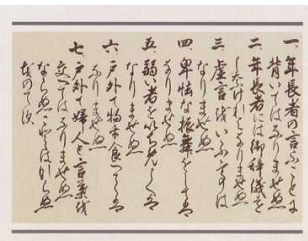 一 年長者の言ふことに
背いてはなりませぬ
二 年長者には御辞儀を
しなければなりませぬ
三 虚言を言ふことは
なりませぬ
四 卑怯な振舞をしては
なりませぬ
五 弱い者をいぢめては
なりませぬ
六 戸外で物を食べては
なりませぬ
七 戸外で婦人と言葉を
交へてはなりませぬ
ならぬことはならぬ
ものです